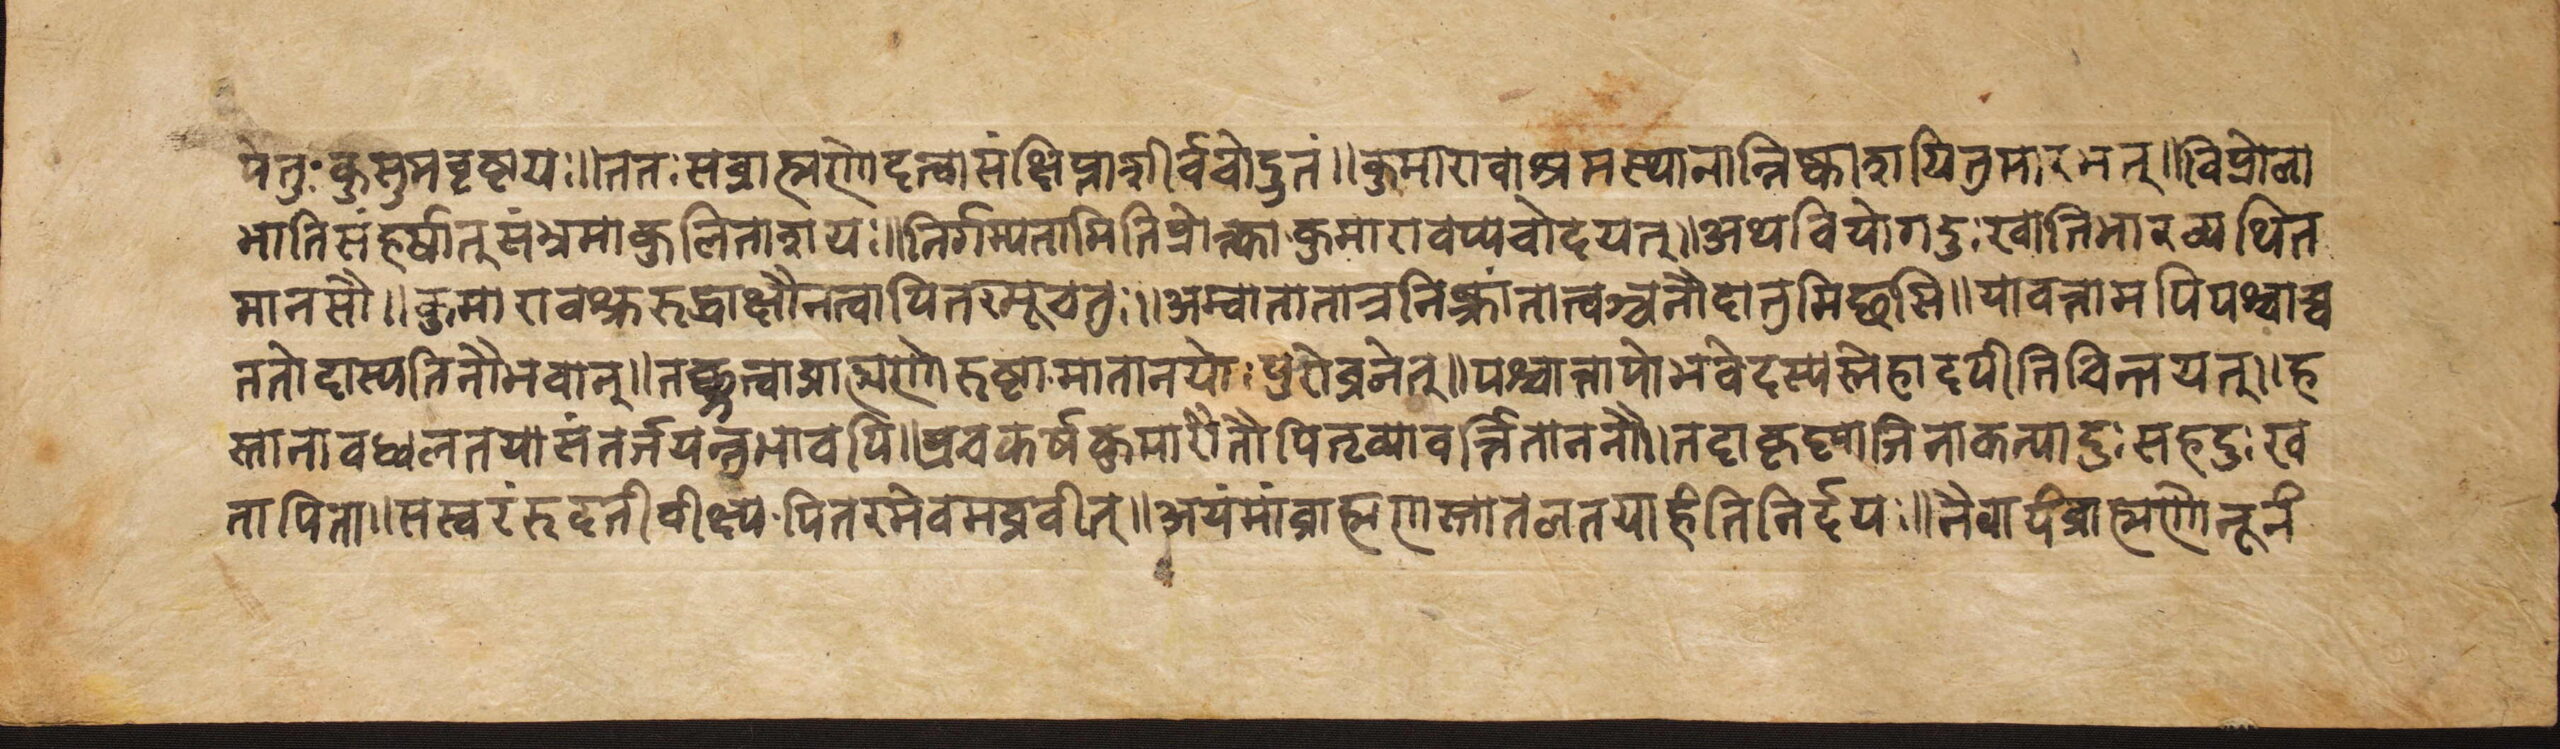 पेतुः कुसुमवृष्टयः॥ततःसब्राह्मणोदत्वासंक्षिप्ताशीर्वचोद्रुतं॥कुमारावाश्रमस्थानान्निष्काशयितुमारभत्॥विप्रोला
भातिसंहर्षात्संभ्रमाकुलिताशयः॥निर्गम्यतामितिप्रोक्त्वाकुमारावप्यचोदयत्॥अथवियोगदुःखातिभारव्यथित
मानसौ॥कुमारावश्रुरुद्धाक्षौनत्वापितरमूचतुः॥अम्बातातात्रनिष्क्रांतात्वञ्चनौदातुमिछसि॥यावत्तामपिपश्याव
ततोदास्यतिनौभवान्॥तच्छ्रुत्वाब्राह्मणोरुष्टामातानयोःपुरोव्रजेत्॥पश्चात्तापोभवेदस्यस्नेहादपीतिचिन्तयत्॥ह
स्तानावध्यलतयासंतर्जयन्नुभावपि॥प्रचकर्षकुमारौतौपितृव्यावर्त्तिताननौ॥तदाकृष्णाजिनाकन्यादुःसहदुःख
तापिता॥सस्वरंरुदतीवीक्ष्यपितरमेवमब्रवीत्॥अयंमांब्राह्मणस्तातलतयाहंतिनिर्द्दयः॥नैवायंब्राह्मणोनूनं